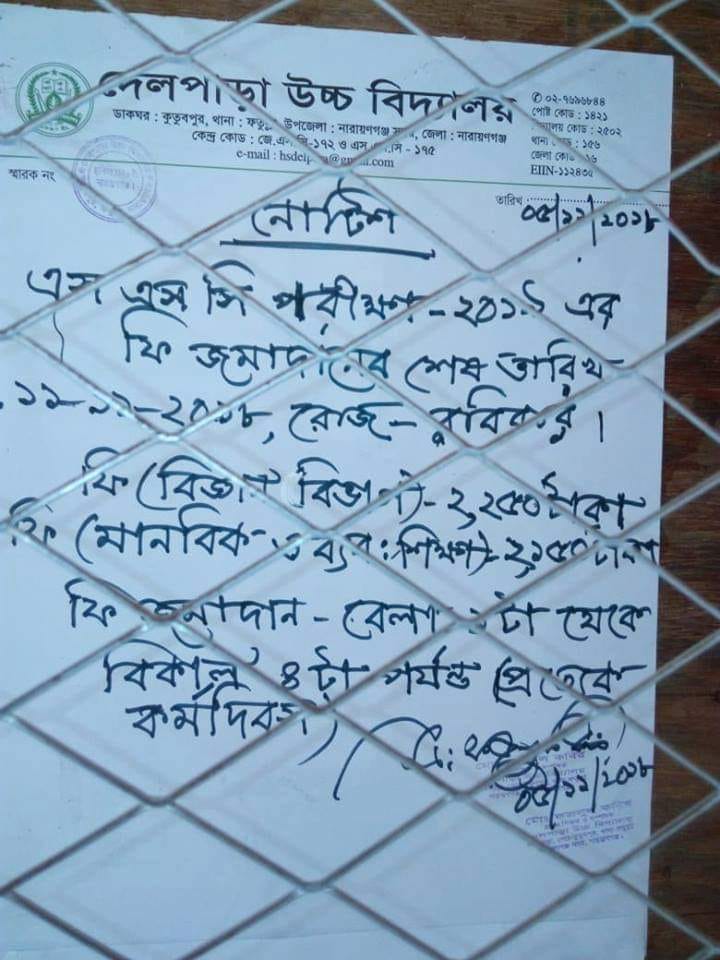 দেলপাড়া উচ্চ বিদ্যালয়
ডাকঘর : কুতুবপুর, থানা : উপজেলা : নারায়ণগঞ্জ জেলা : নারায়ণগঞ্জ
কেন্দ্র কোড : ১৭২ ও এস - ১৭৫
e-mail :
✆ ০২-৭৬৯৬৮৪৪
পোষ্ট কোড : ১৪২১
কোড : ২৫০২
থানা : ১৫৬
জেলা
EIIN-১১২৪৩৫
স্মারক নং
তারিখ : ০৫/১১/২০১৮
নোটিশ
এস এস সি পরীক্ষা-২০১৯ এর
ফি জমাদানের শেষ তারিখ-
১১-১১-২০১৮, রোজ- রবিবার।
ফি (বিজ্ঞান বিভাগ)- ২,২৫০ টাকা
ফি (মানবিক ও ব্যব: শিক্ষা)- ২,১৫০ টাকা
ফি জমাদান - বেলা টা থেকে
বিকাল ৪টা পর্যন্ত (প্রত্যেক
কর্মদিবস)
০৫/১১/২০১৮